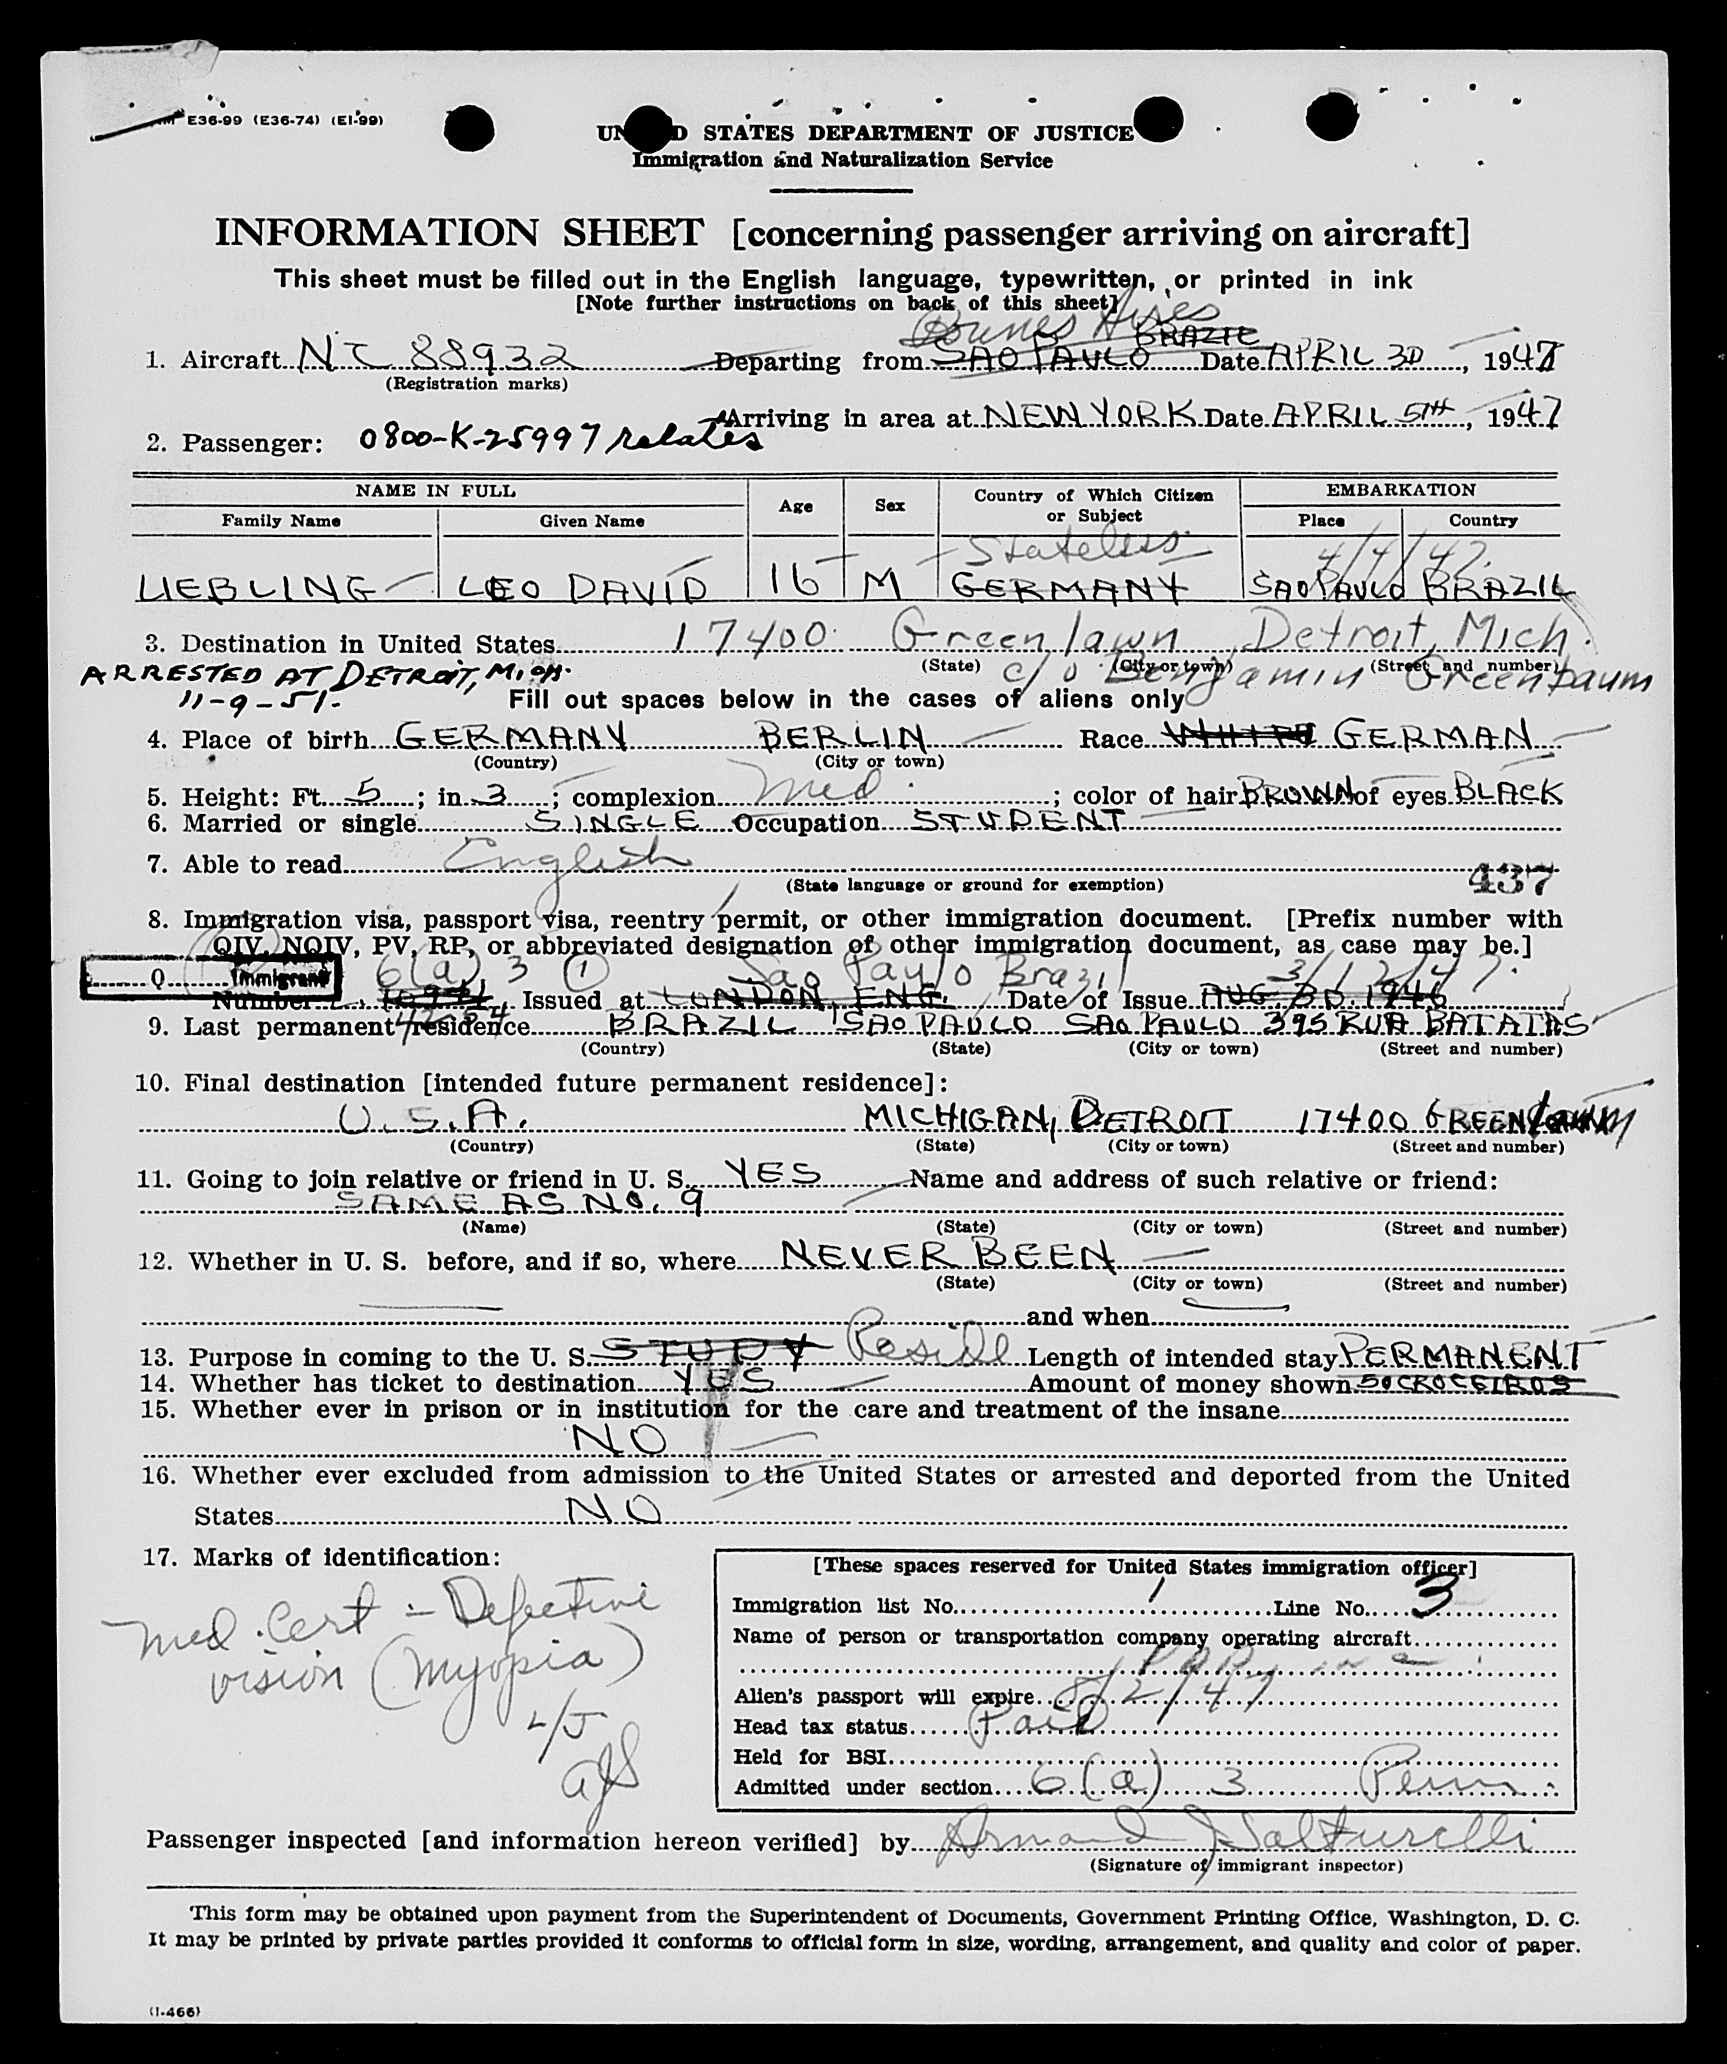 E36-99 (E36-74) (EI-99)
UN D STATES DEPARTMENT OF JUSTICE
Immigration and Naturalization Service
INFORMATION SHEET [concerning passenger arriving on aircraft]
This sheet must be filled out in the English language, typewritten, or printed in ink
[Note further instructions on back of this sheet]
Bounes Aires
BRAZIL
1. Aircraft NC 88932 Departing from SAO PAULO Date APRIL 3D, 1947
(Registration marks)
Arriving in area at NEW YORK Date APRIL 5TH, 1947
2. Passenger: 0800-K-25997 relates
NAME IN FULL Age Sex Country of Which Citizen or Subject EMBARKATION
Family Name Given Name Place Country
Stateless 4/4/47.
LIEBLING LEO DAVID 16 M GERMANY SAO PAULO BRAZIL
3. Destination in United States 17400 Greenlawn Detroit, Mich.
(State) (City or town) (Street and number)
c/o Benjamin Greenbaum
ARRESTED AT DETROIT, MICH.
11-9-51.
Fill out spaces below in the cases of aliens only
4. Place of birth GERMANY BERLIN Race WHITE GERMAN
(Country) (City or town)
5. Height: Ft. 5; in. 3; complexion Med.; color of hair BROWN of eyes BLACK
6. Married or single SINGLE Occupation STUDENT
7. Able to read English
(State language or ground for exemption)
437
8. Immigration visa, passport visa, reentry permit, or other immigration document. [Prefix number with
QIV, NQIV, PV, RP, or abbreviated designation of other immigration document, as case may be.]
Q Immigrant 6(a) 3 1 Sao Paulo Brazil 3/12/47.
Number Issued at LONDON, ENG. Date of Issue AUG. 1946
9. Last permanent residence BRAZIL SAO PAULO SAO PAULO 395 RUA BATATAIS
(Country) (State) (City or town) (Street and number)
10. Final destination [intended future permanent residence]:
U.S.A. MICHIGAN, DETROIT 17400 GREENLAWN
(Country) (State) (City or town) (Street and number)
11. Going to join relative or friend in U. S. YES Name and address of such relative or friend:
SAME AS NO. 9
(Name) (State) (City or town) (Street and number)
12. Whether in U. S. before, and if so, where NEVER BEEN
(State) (City or town) (Street and number)
and when
13. Purpose in coming to the U. S. STUDY Reside Length of intended stay PERMANENT
14. Whether has ticket to destination YES Amount of money shown 50 CROCEIROS
15. Whether ever in prison or in institution for the care and treatment of the insane
NO
16. Whether ever excluded from admission to the United States or arrested and deported from the United
States NO
17. Marks of identification:
Med. Cert - Defective
vision (myopia)
L/J
[These spaces reserved for United States immigration officer]
Immigration list No. 1 Line No. 3
Name of person or transportation company operating aircraft
Alien's passport will expire 8/2/47
Head tax status Paid
Held for BSI
Admitted under section 6(a) 3 Perm.
Passenger inspected [and information hereon verified] by Armand J Salturelli
(Signature of immigrant inspector)
This form may be obtained upon payment from the Superintendent of Documents, Government Printing Office, Washington, D. C.
It may be printed by private parties provided it conforms to official form in size, wording, arrangement, and quality and color of paper.
(I-466)